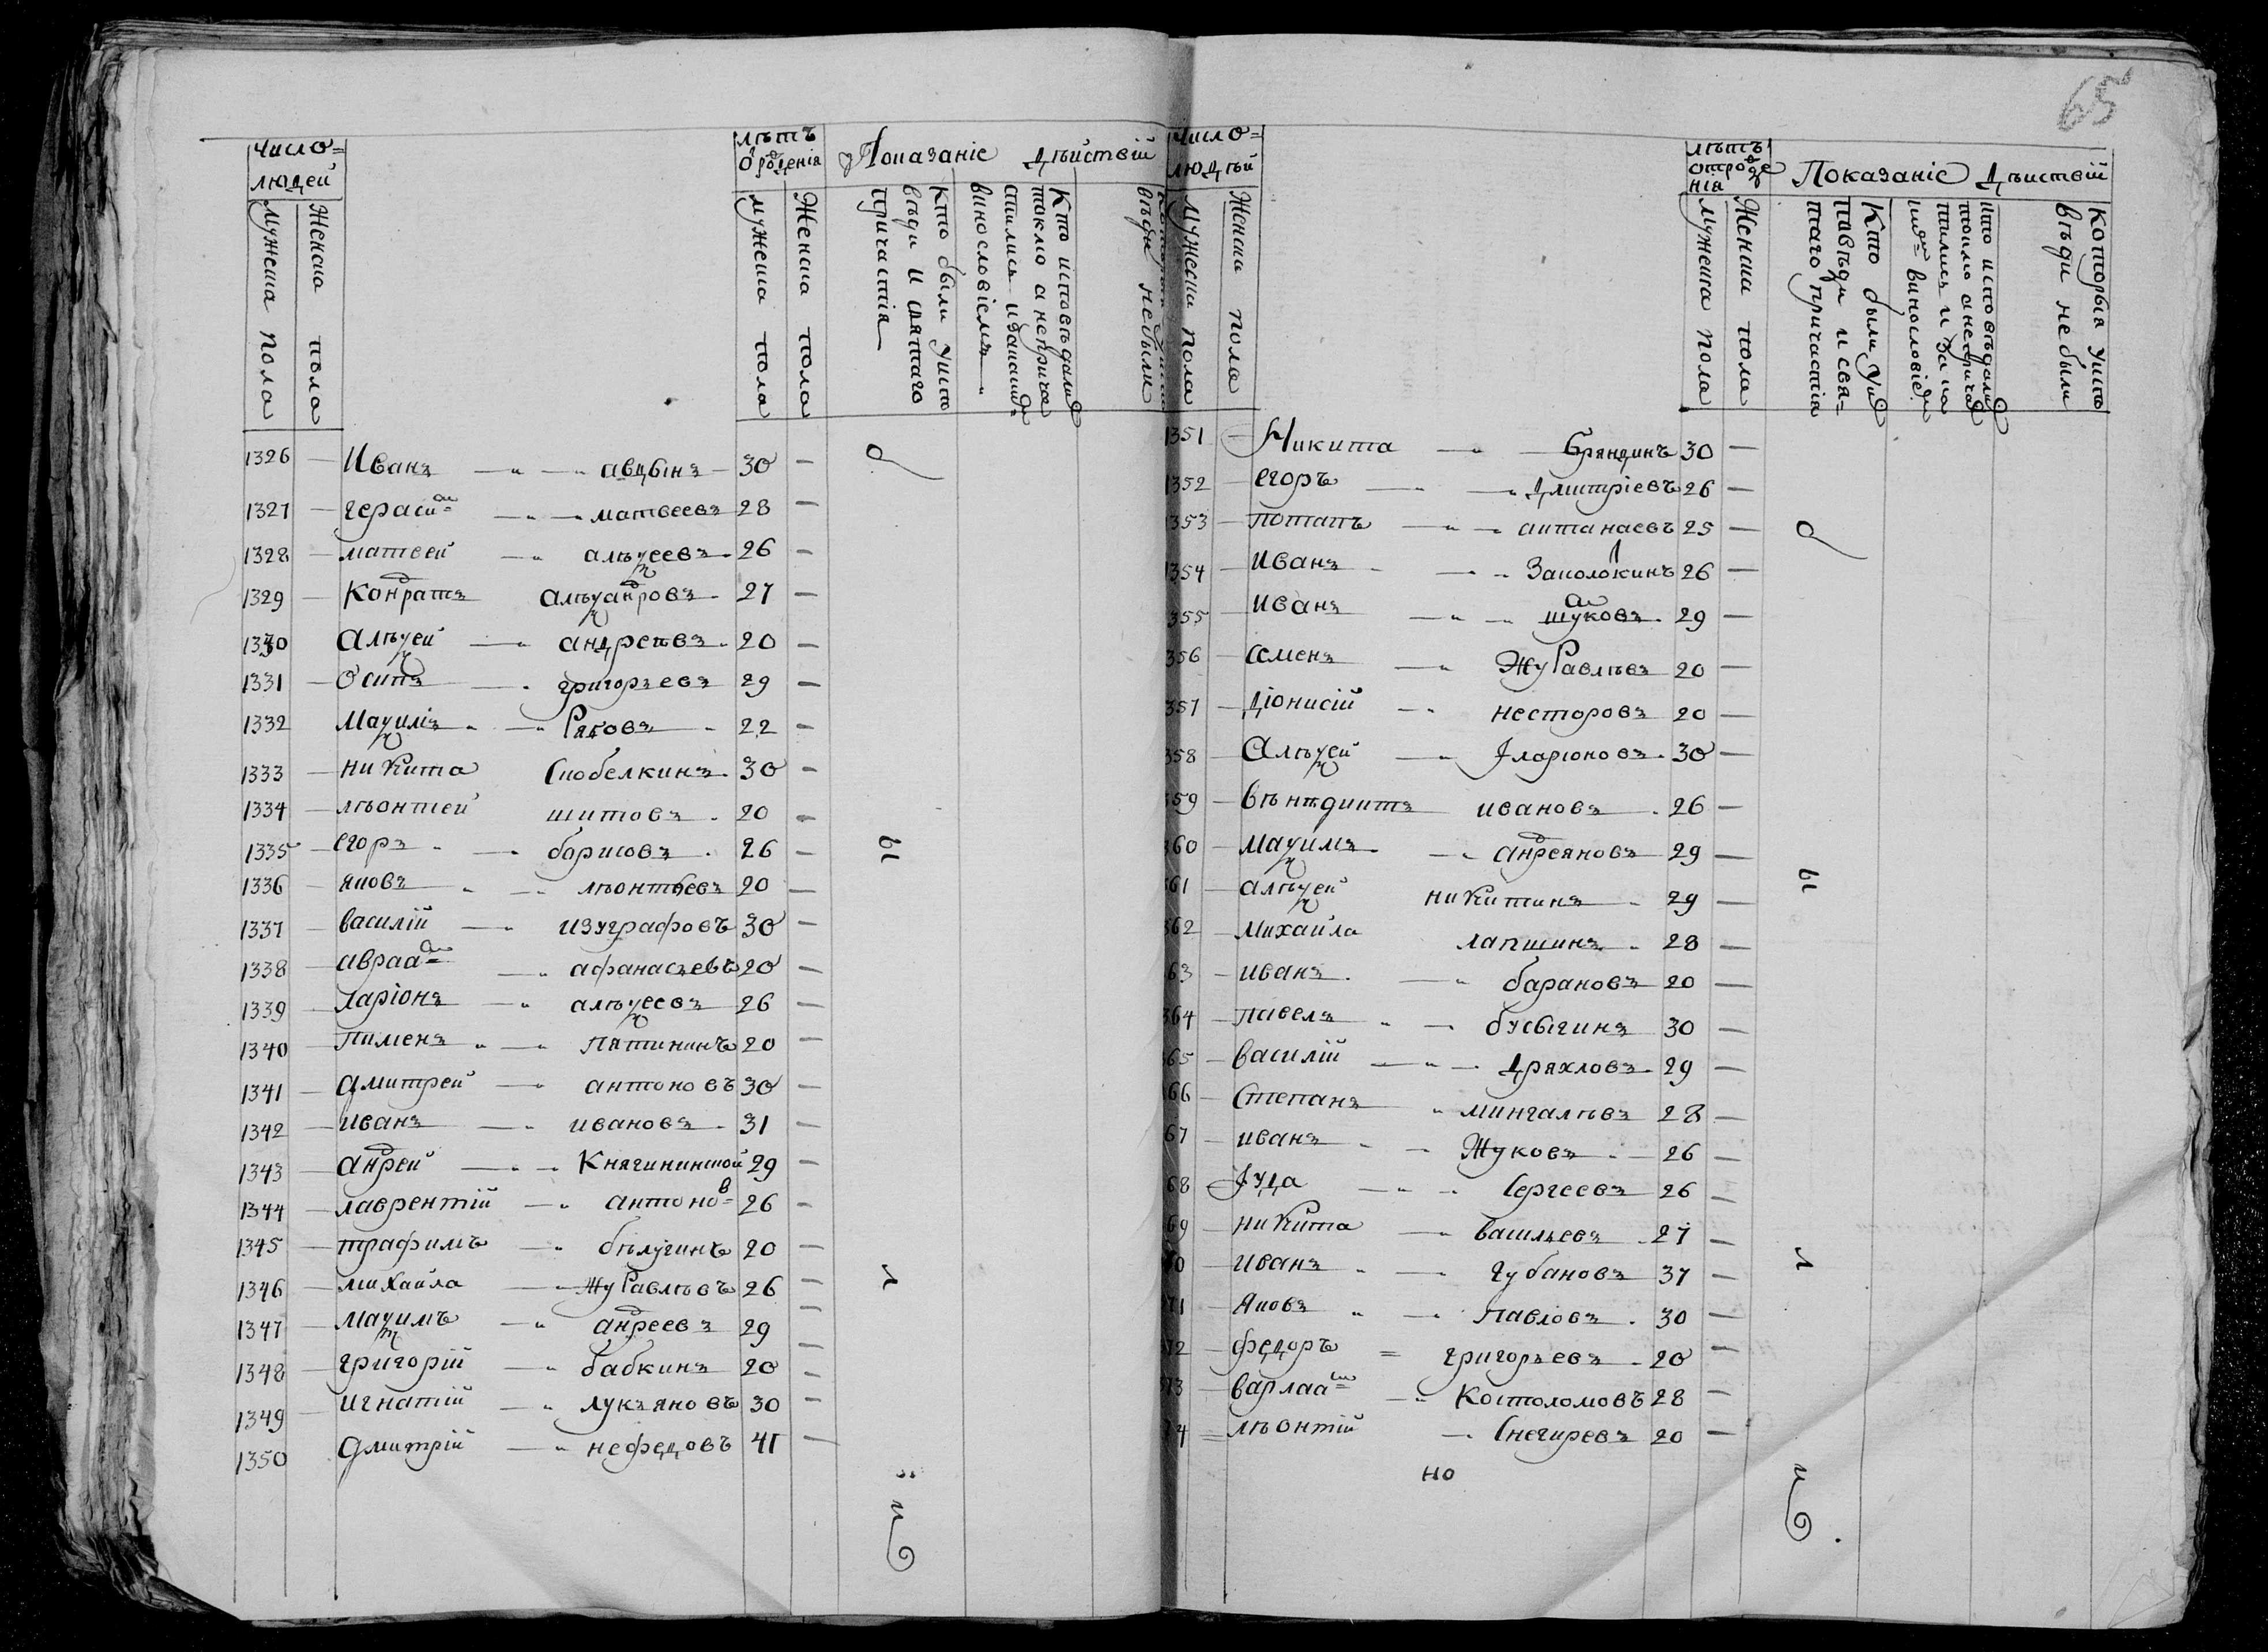 65
Число=
людей
мужеска пола
женска пола
лѣтъ
о рожденія
мужеска пола
женска пола
Показаніе дѣйствій
Кто были у испо
вѣди и святаго
причастія
Кто исповѣдали
токмо а неприча
стились
винословіемъ
вѣди небыли
1326 — Иванъ — авдѣинъ — 30 —
1327 — гераси м= — матвеевъ 28 —
1328 — матвей — алѣѯеевъ 26 —
1329 — Кондратъ алѣѯандровъ 27 —
1330 алѣѯей — андреѣвъ 20 —
1331 — Осипъ — григорьевъ 29 —
1332 маѯимъ — Рябовъ 22 —
1333 — никита Скобелкинъ 30 —
1334 — лѣонтей шитовъ 20 —
1335 — егоръ — борисовъ 26 —
1336 — яковъ — лѣонтьевъ 20 —
1337 — василій — изуграфовъ 30 —
1338 — авраам= — афанасьевъ 20 —
1339 — ларіонъ — алѣѯеевъ 26 —
1340 — пименъ — Пятининъ 20 —
1341 — дмитрей — антоновъ 30 —
1342 — иванъ — ивановъ 31 —
1343 — андрей — Княгининской 29 —
1344 — лаврентій — антонов= 26 —
1345 — трафимъ — бѣлугинъ 20 —
1346 — михайла — Журавлѣвъ 26 —
1347 — маѯимъ — андреевъ 29 —
1348 — григорій — бабкинъ 20 —
1349 — игнатій — лукьяновъ 30 —
1350 дмитрій — нефедовъ 41 —
б
ы
л
и
Число=
людѣй
мужеска пола
женска пола
лѣтъ
отрожде
нія
мужеска пола
женска пола
Показаніе дѣиствій
Кто были у ис
повѣди и свя=
таго причастія
кто исповѣдали
токмо а неприча
стились и за ка
винословіе
которыя у испо
вѣди не были
1351 — Никита — Брындинъ 30 —
1352 — егоръ — дмитріевъ 26 —
1353 — потапъ — антанаевъ 25 —
1354 — иванъ — Заколокинъ 26 —
1355 — иванъ — шуковъ 29 —
356 — семенъ — Журавлѣвъ 20 —
357 — діонисій — несторовъ 20 —
358 — алѣѯей — Іларіоновъ 30 —
359 — вѣнѣдиктъ ивановъ 26 —
360 — маѯимъ — андреяновъ 29 —
361 — алѣѯей никитинъ 29 —
362 — михайла лапшинъ 28 —
363 — иванъ — барановъ 20 —
364 — павелъ — бусыгинъ 30 —
365 — василій — дряхловъ 29 —
366 — Степанъ мингалѣвъ 28 —
67 — иванъ — Жуковъ — 26 —
68 Іуда — Сергеевъ 26 —
69 — никита — васильевъ 27 —
70 — иванъ — губановъ 37 —
71 — яковъ — павловъ 30 —
72 — федоръ = григорьевъ 20 —
73 — варлаам= — Костоломовъ 28 —
74 = лѣонтій — Снегиревъ 20 —
но
б
ы
л
и